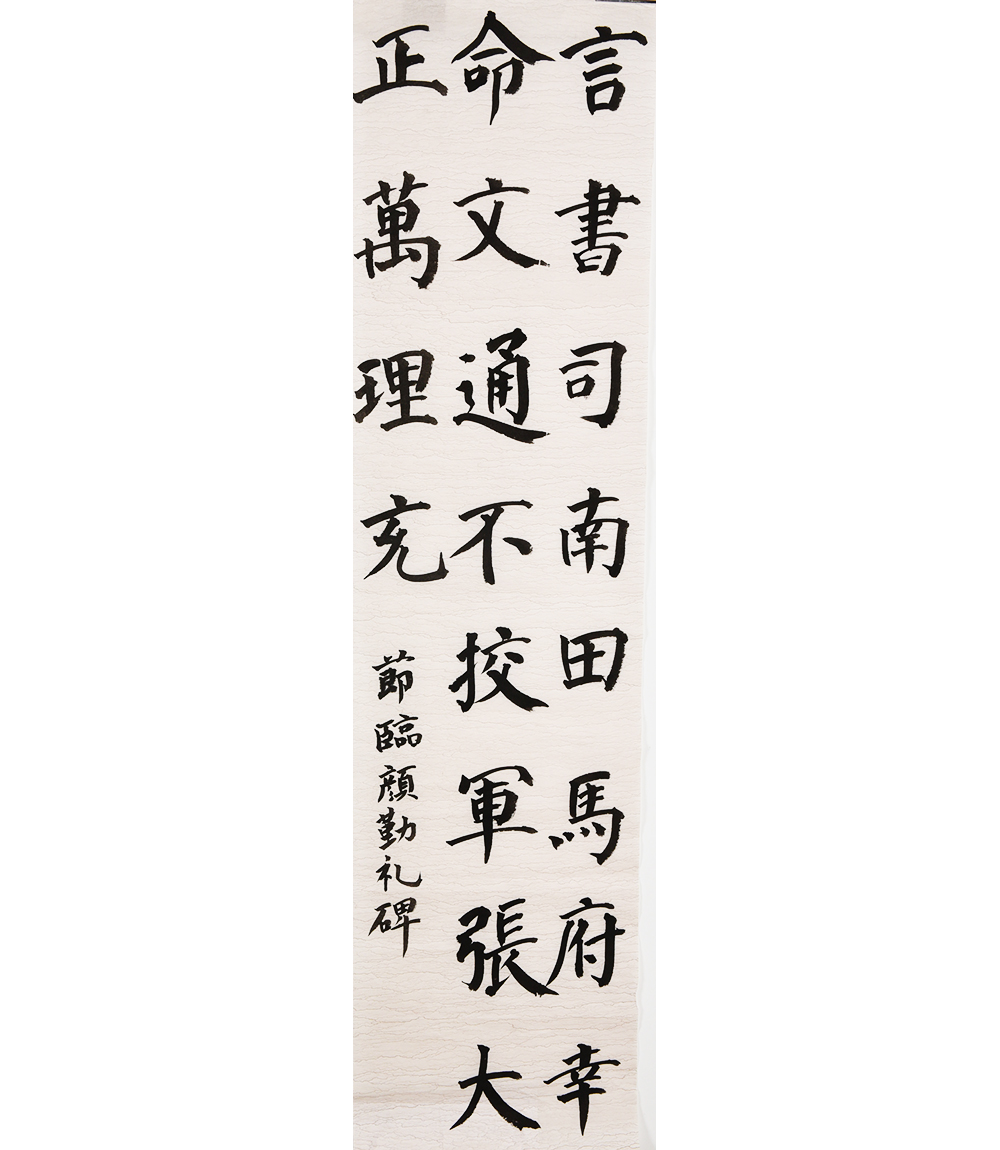 言書司南田馬府幸
命文通不挍軍張大
正萬理充
節臨顏勤礼碑